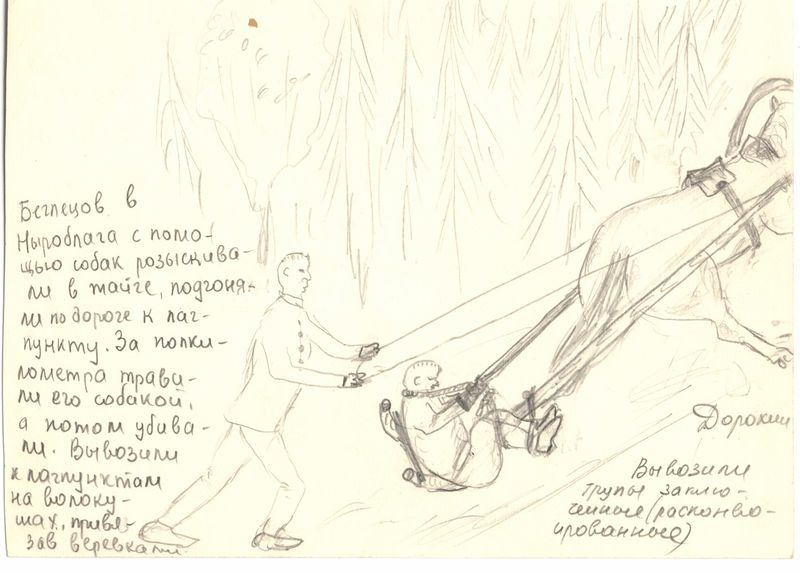 Беглецов в
Ныроблага с помо-
щью собак розыскива-
ли в тайге, подгоня-
ли по дороге к лаг-
пункту. За полки-
лометра трави-
ли его собакой,
а потом убива-
ли. Вывозили
к лагпунктам
на волоку-
шах, привя-
зав веревками.
Дорокин
Вывозили
трупы заклю-
ченные (расконво-
ированные)